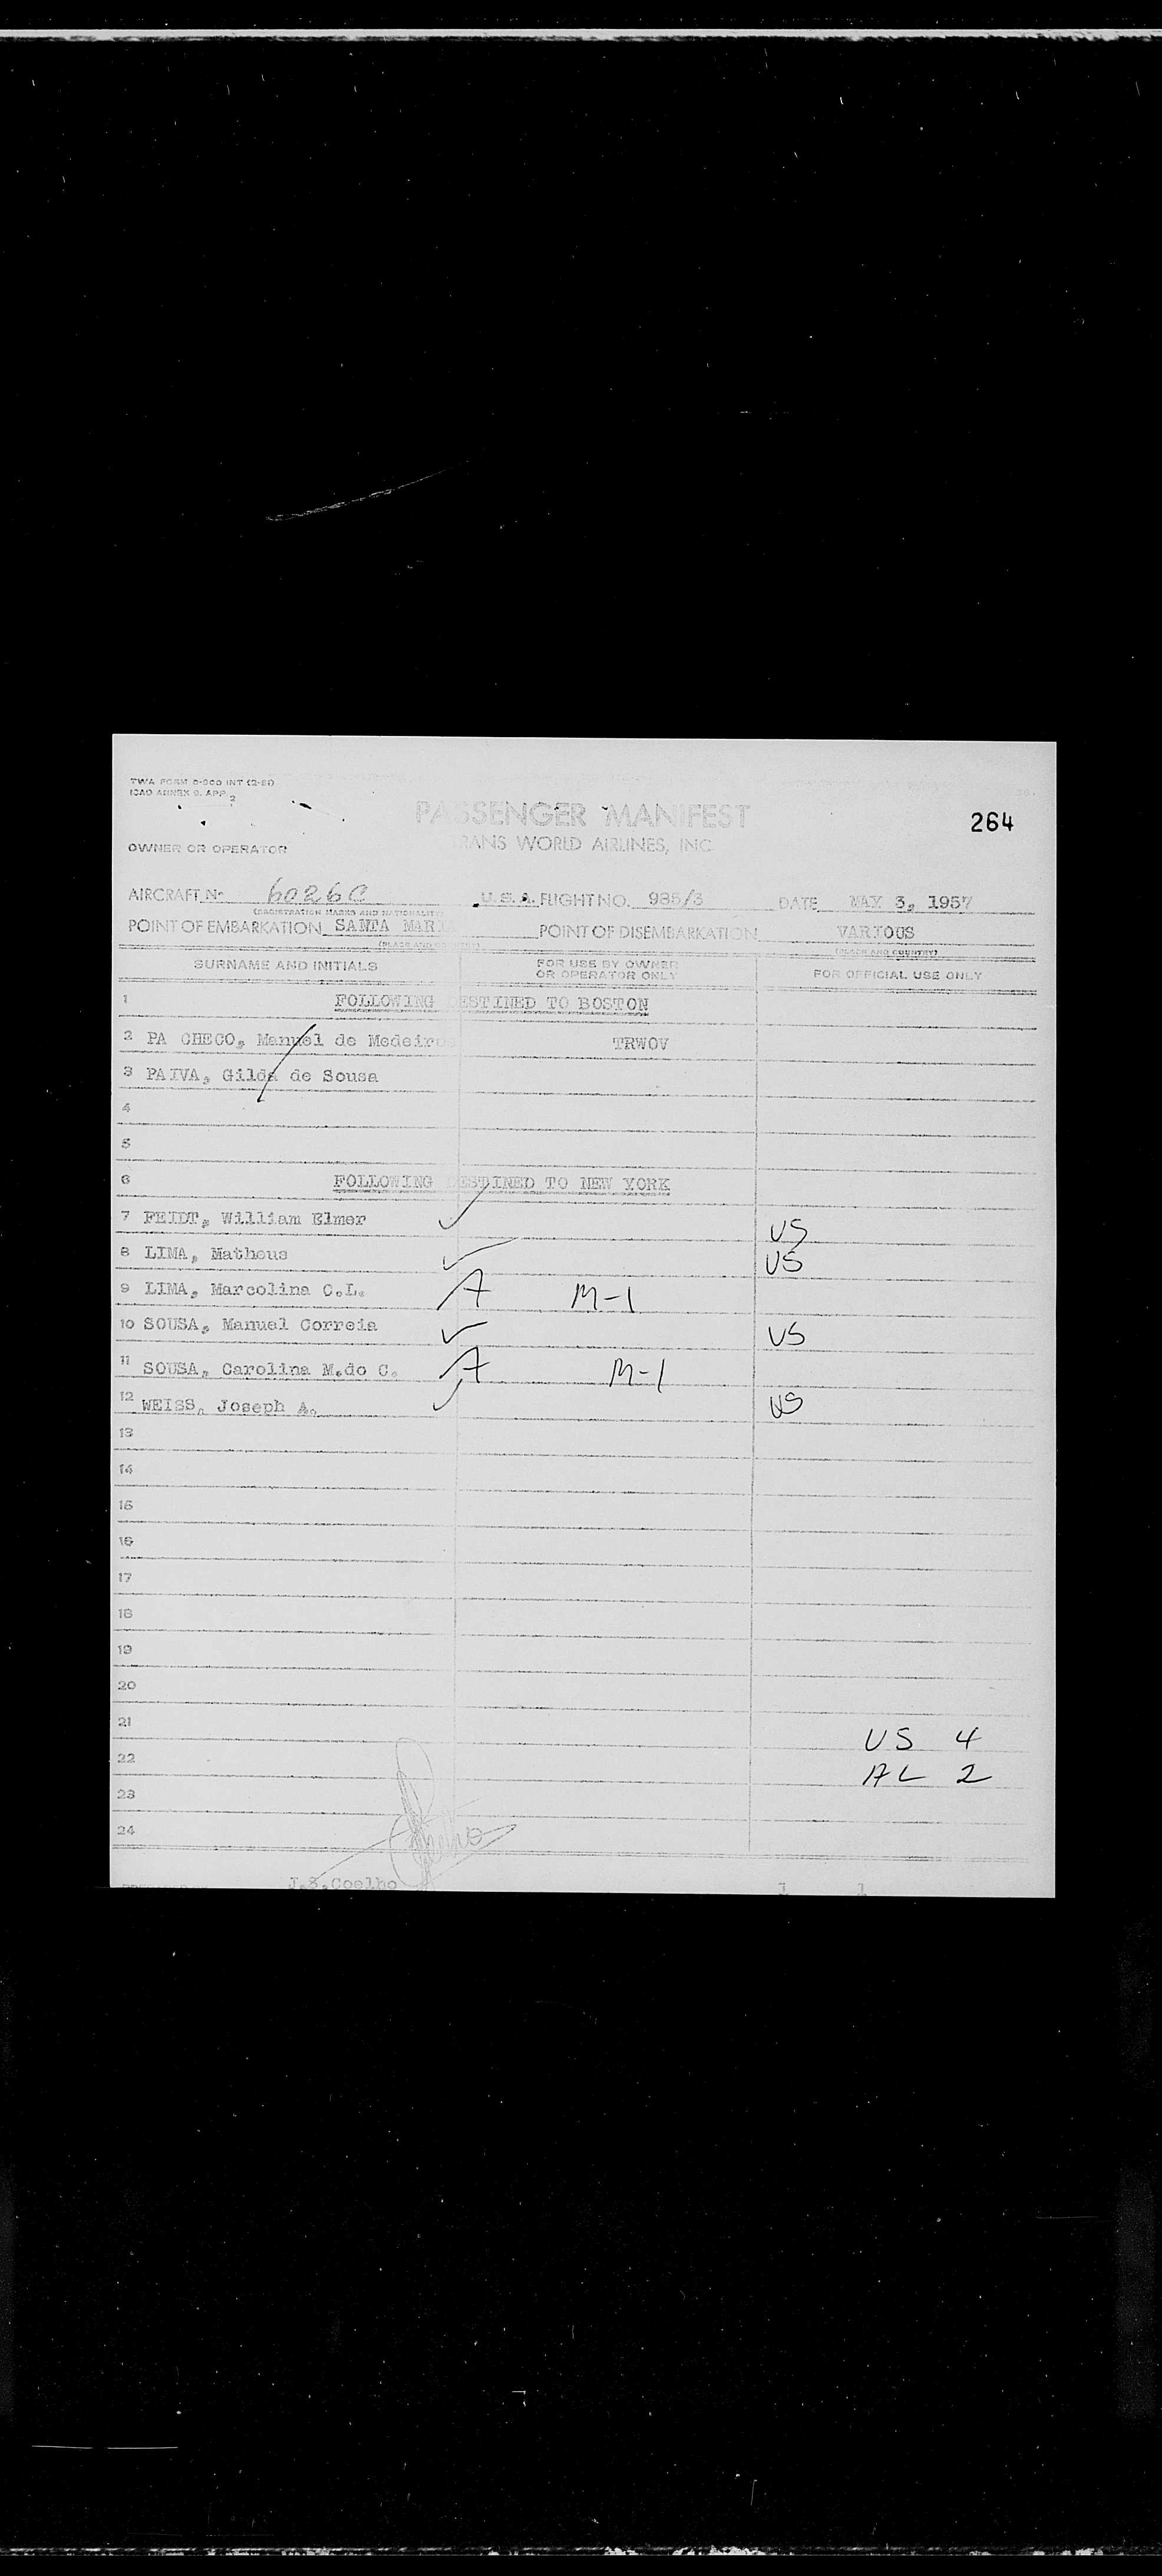 TWA FORM
ICAO ANNEX 9. APP 2
PASSENGER MANIFEST
264
TRANS WORLD AIRLINES, INC
OWNER OR OPERATOR
AIRCRAFT No 6026C U.S.A. FLIGHT NO. 985/3 DATE MAY 3, 1957
(REGISTRATION MARKS AND NATIONALITY)
POINT OF EMBARKATION SANTA MARIA POINT OF DISEMBARKATION VARIOUS
(PLACE AND COUNTRY) (PLACE AND COUNTRY)
SURNAME AND INITIALS FOR USE BY OWNER OR OPERATOR ONLY FOR OFFICIAL USE ONLY
1 FOLLOWING DESTINED TO BOSTON
2 PA CHECO, Manuel de Medeiros TRWOV
3 PAIVA, Gilda de Sousa
4
5
6 FOLLOWING DESTINED TO NEW YORK
7 FEIDT, William Elmer US
8 LIMA, Matheus US
9 LIMA, Marcolina C.L. A M-1
10 SOUSA, Manuel Correia US
11 SOUSA, Carolina M.do C. A M-1
12 WEISS, Joseph A. US
13
14
15
16
17
18
19
20
21 US 4
22 AL 2
23
24
J.S.Coelho 1 1